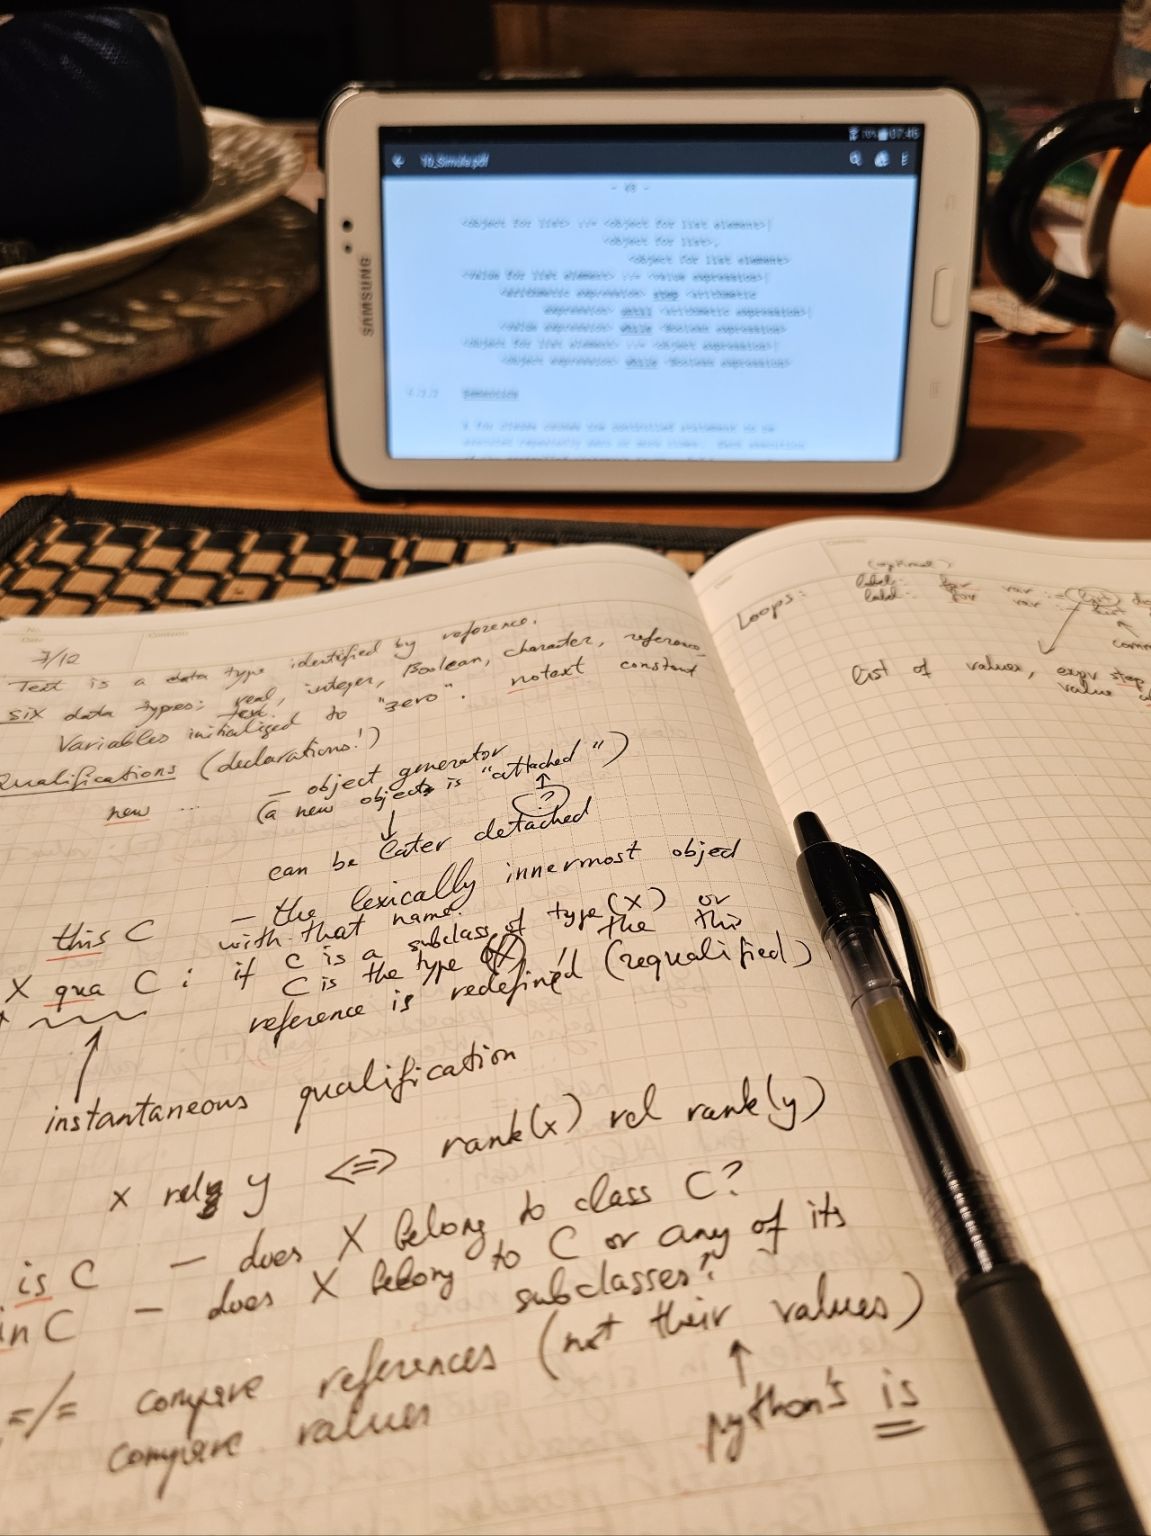 07:46
10_Simula.pdf
<object for list> ::= <object for list element>|
<object for list>,
<object for list element>
<value for list element> ::= <value expression>|
<arithmetic expression> step <arithmetic
expression> until <arithmetic expression>|
<value expression> while <Boolean expression>
<object for list element> ::= <object expression>|
<object expression> while <Boolean expression>
semantics
SAMSUNG
7/12
Text is a data type identified by reference.
six data types: real, integer, Boolean, character, reference,
text.
Variables initialized to "zero". notext constant
Qualifications (declarations!)
new ... — object generator
(a new object is "attached")
?
can be later detached
this C — the lexically innermost object
with that name.
X qua C : if C is a subclass of type(X) or
C is the type of X, the this
reference is redefined (requalified)
instantaneous qualification
x rel y <=> rank(x) rel rank(y)
is C — does X belong to class C?
in C — does X belong to C or any of its
subclasses?
=/= compare references (not their values)
compare values
python's is
Loops:
(optional)
label: for var := list
label: for var list
list of values, expr step
value